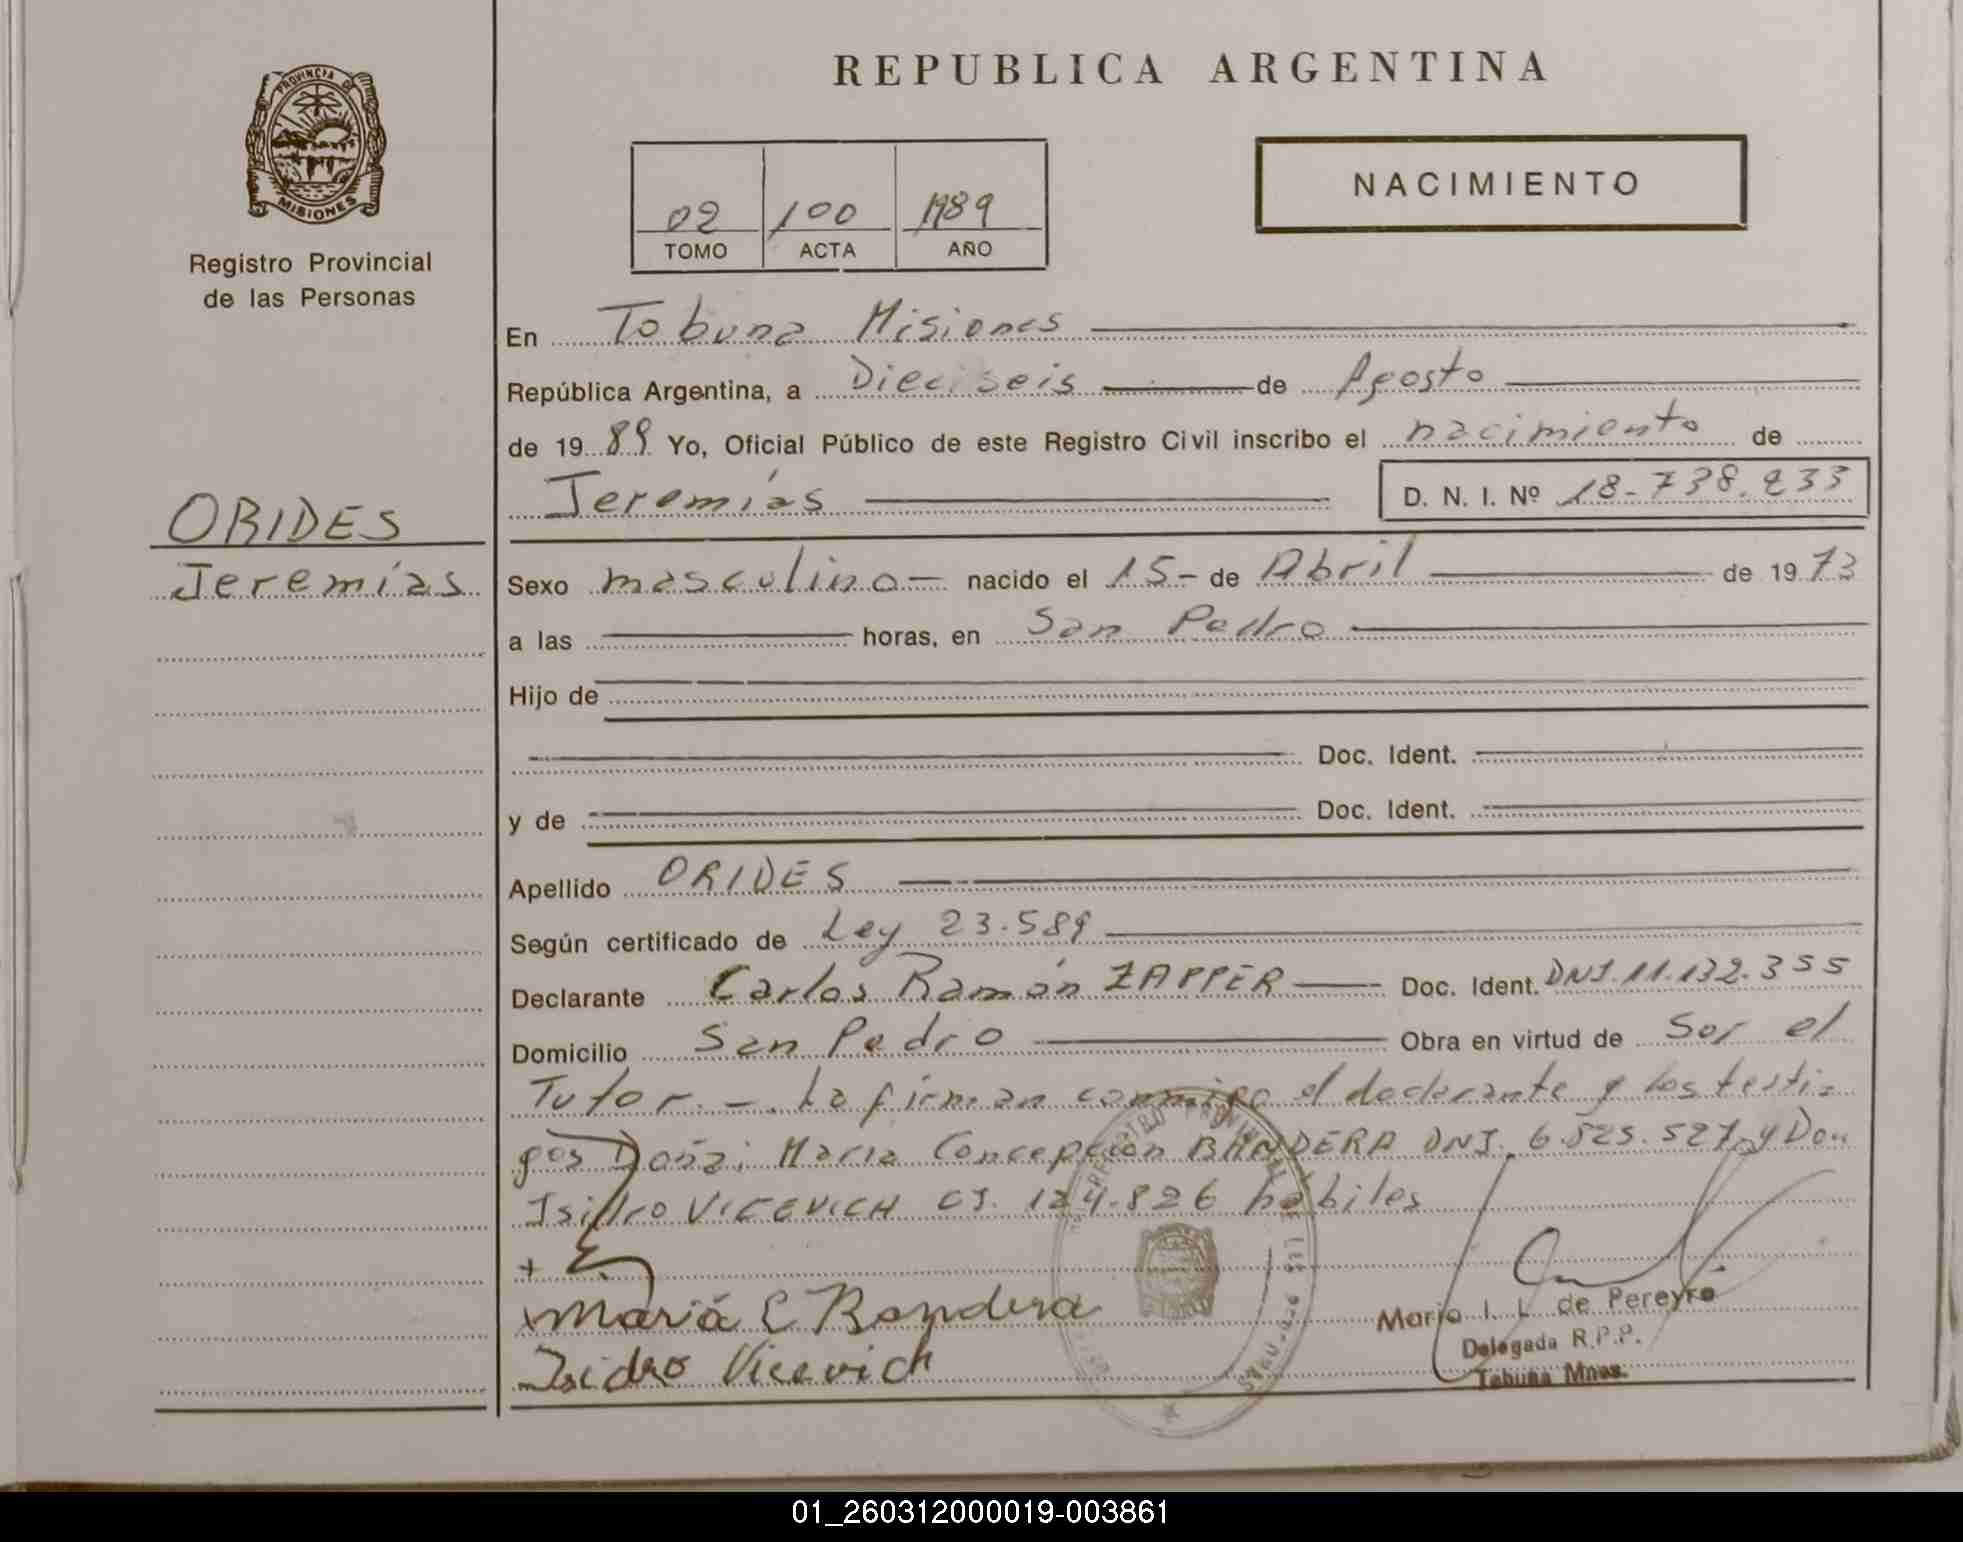 REPUBLICA ARGENTINA
PROVINCIA DE
MISIONES
Registro Provincial
de las Personas
02 100 1989
TOMO ACTA AÑO
NACIMIENTO
En Tobuna Misiones
República Argentina, a Dieciseis de Agosto
de 1989 Yo, Oficial Público de este Registro Civil inscribo el nacimiento de
Jeremías D. N. I. Nº 18-738.233
ORIDES
Jeremías
Sexo masculino - nacido el 15 - de Abril de 1973
a las horas, en San Pedro
Hijo de
Doc. Ident.
y de Doc. Ident.
Apellido ORIDES
Según certificado de Ley 23.589
Declarante Carlos Ramón ZAPPER Doc. Ident. DNI. 11.132.355
Domicilio San Pedro Obra en virtud de Ser el
Tutor. -. La firman conmigo el declarante y los testi-
gos Doña: María Concepción BANDERA DNI. 6.825.527 y Don
Isidro VICEVICH CI. 124.826 hábiles
+
x María C Bandera
Isidro Vicevich
Mario I. L. de Pereyra
Delegada R.P.P.
Tobuna Mnes.
01_260312000019-003861